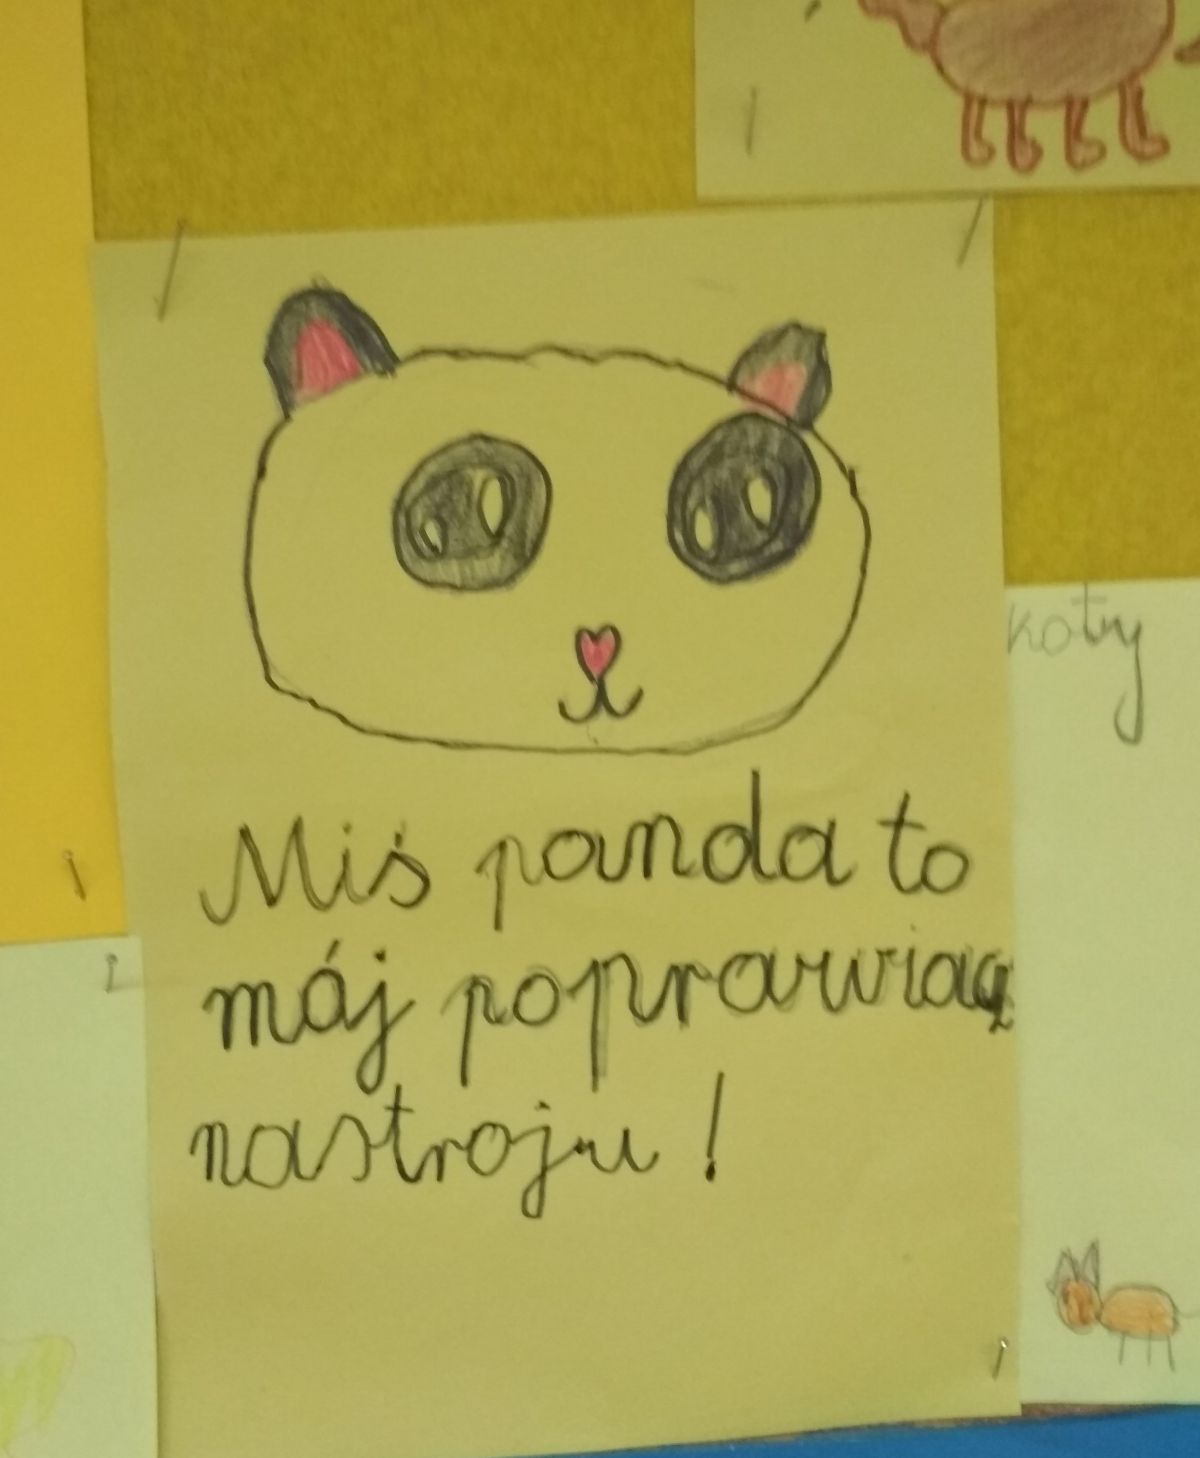 Miś panda to
mój poprawiacz
nastroju!
koty